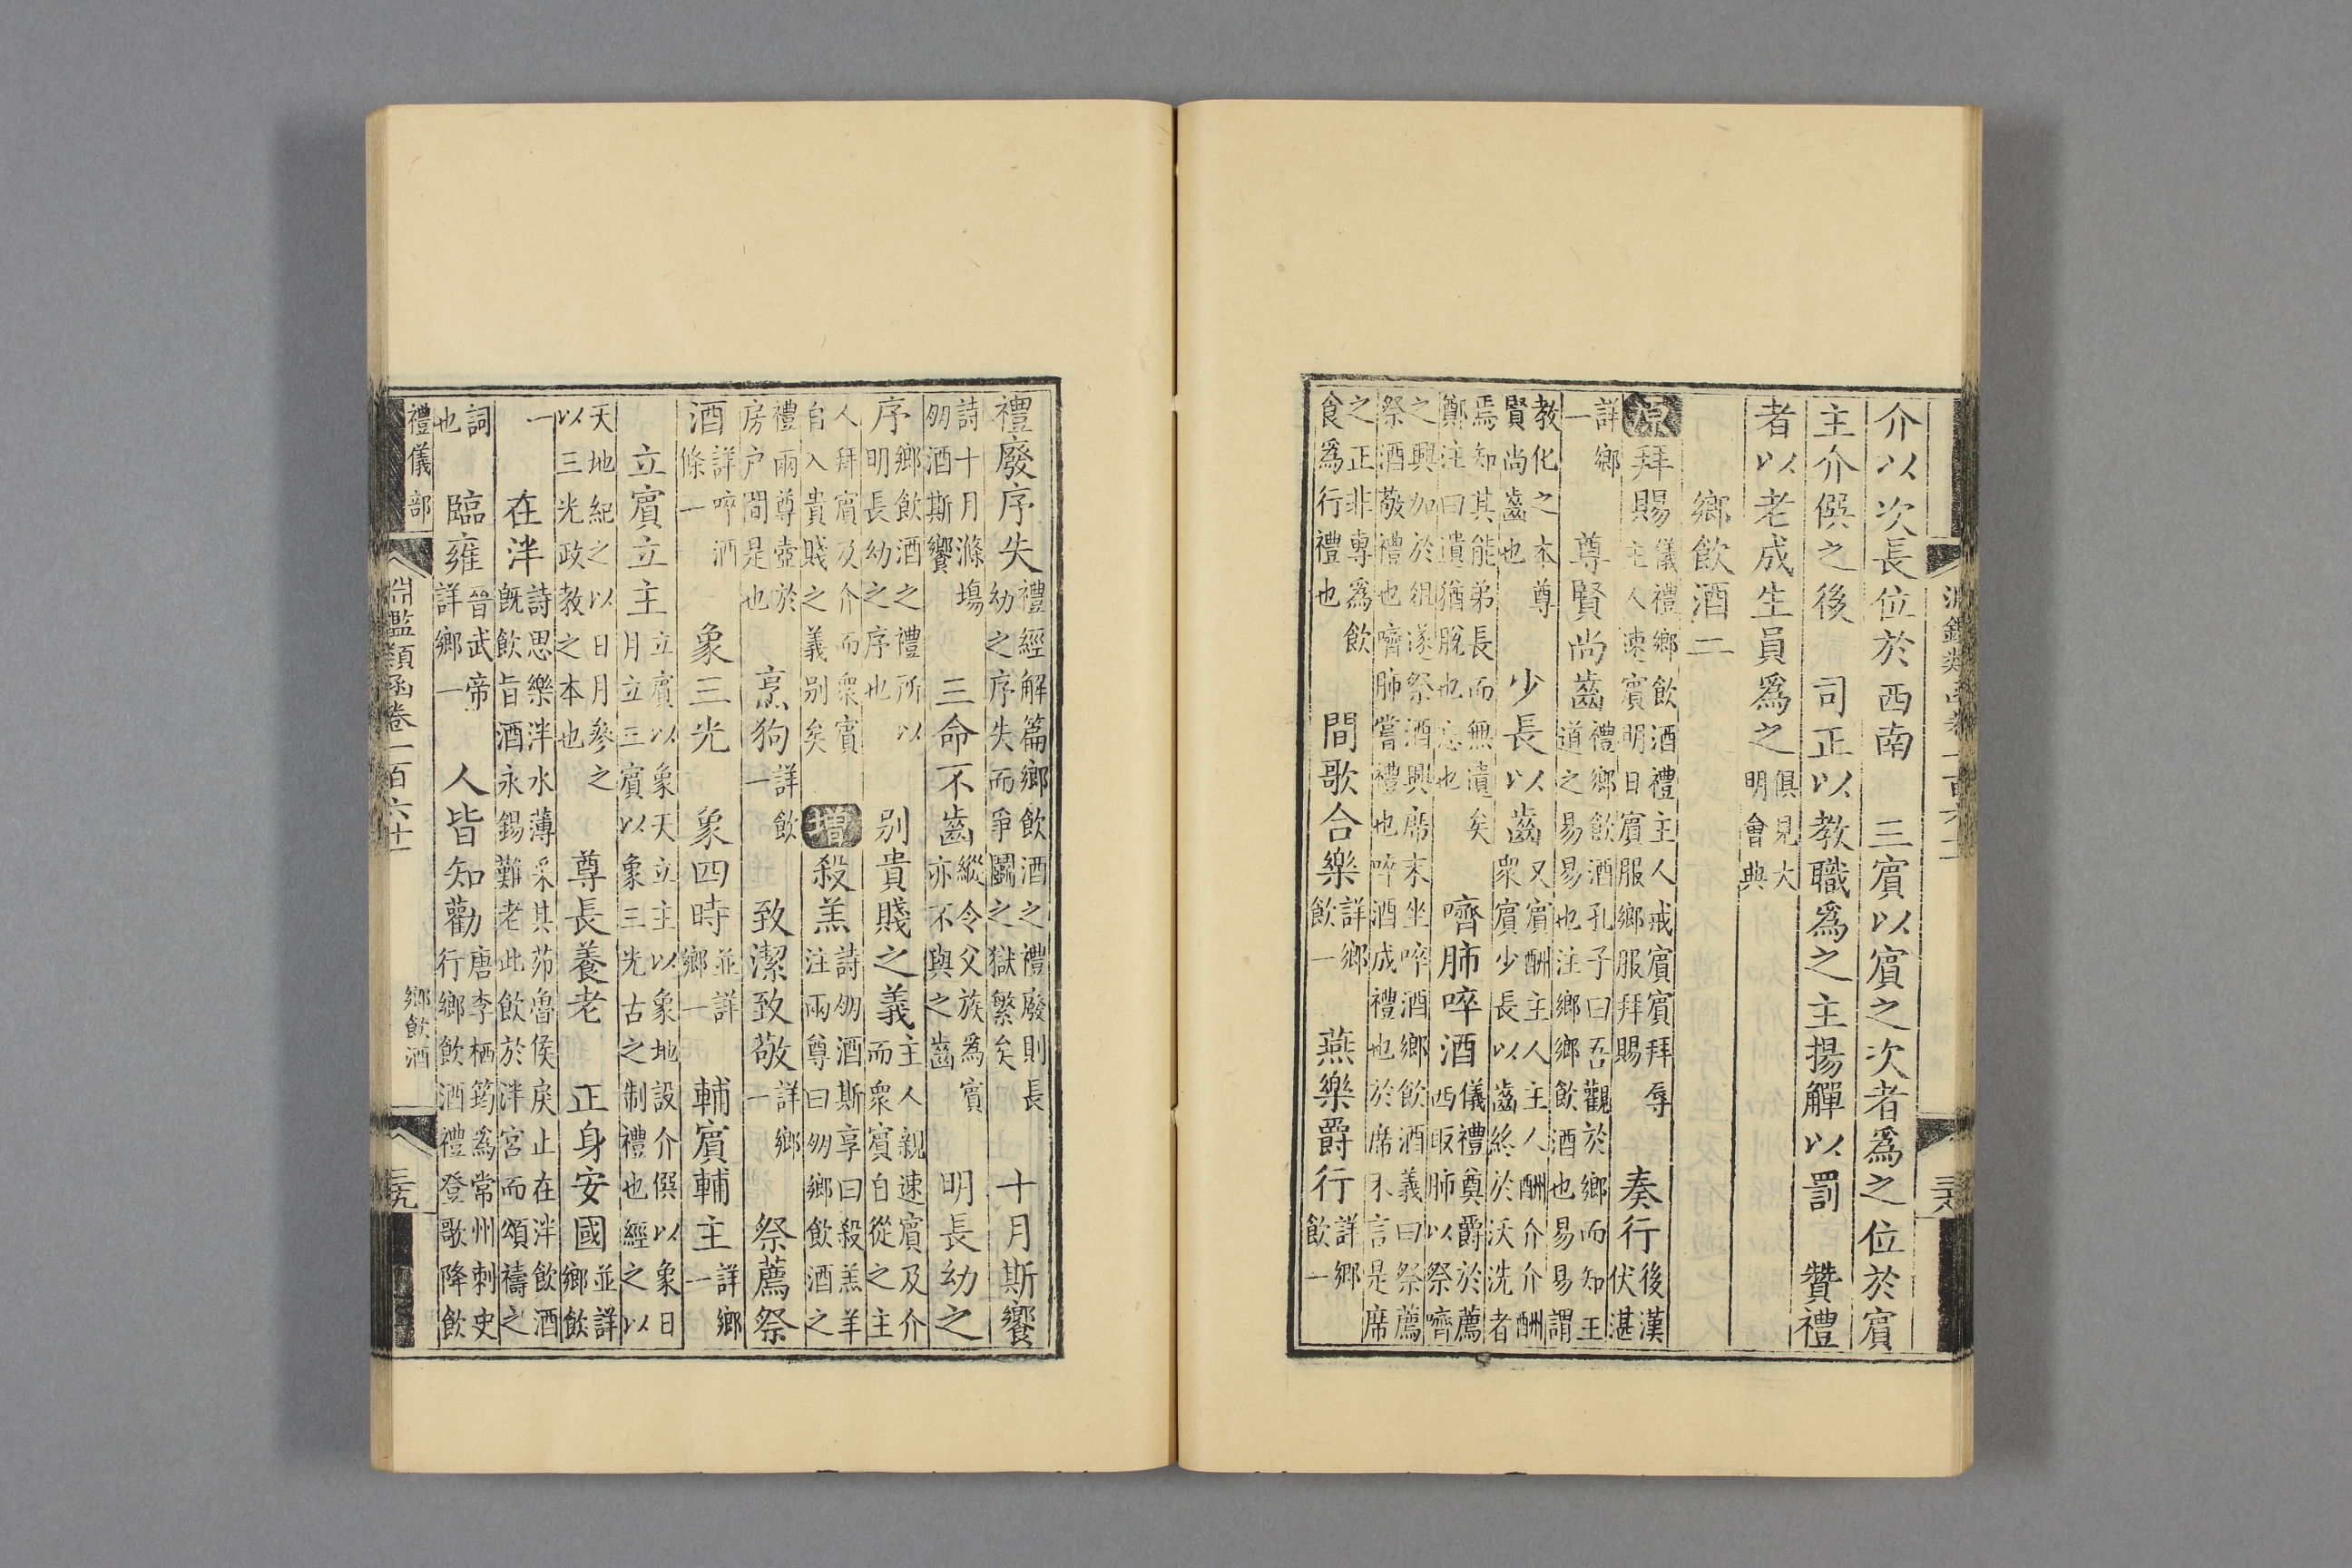 淵鑑類函卷一百六十一
三六
介以次長位於西南　三賓以賓之次者爲之位於賓
主介僎之後　司正以教職爲之主揚觶以罰　贊禮
者以老成生員爲之俱見大明會典
鄉飲酒二
原拜賜儀禮鄉飲酒禮主人戒賓賓拜辱主人速賓明日賓服鄉服拜賜　奏行後漢伏湛
詳鄉一　尊賢尚齒禮鄉飲酒孔子曰吾觀於鄉而知王道之易易也注鄉鄉飲酒也易易謂
教化之本尊賢尚齒也　少長以齒又賓酬主人主人酬介介酬衆賓少長以齒終於沃洗者
焉知其能弟長而無遺矣鄭注曰遺猶脫也忘也　嚌肺啐酒儀禮奠爵於薦西取肺以祭嚌
之興加於俎遂祭酒興席末坐啐酒鄉飲酒義曰祭薦祭酒敬禮也嚌肺嘗禮也啐酒成禮也於席末言是席
之正非專爲飲食爲行禮也　間歌合樂詳鄉飲一　燕樂爵行詳鄉飲一
禮廢序失禮經解篇鄉飲酒之禮廢則長幼之序失而爭鬭之獄繁矣　十月斯饗
詩十月滌場朋酒斯饗　三命不齒縱令父族爲賓亦不與之齒　明長幼之
序鄉飲酒之禮所以明長幼之序也　别貴賤之義主人親速賓及介而衆賓自從之主
人拜賓及介而衆賓自入貴賤之義别矣　增殺羔詩朋酒斯享曰殺羔羊注兩尊曰朋鄉飲酒之
禮兩尊壺於房户間是也　烹狗詳飲一　致潔致敬詳鄉一　祭薦祭
酒詳啐酒條一　象三光　象四時並詳鄉一　輔賓輔主詳鄉一
立賓立主立賓以象天立主以象地設介僎以象日月立三賓以象三光古之制禮也經之以
天地紀之以日月參之以三光政教之本也　尊長養老　正身安國並詳鄉飲
一　在泮詩思樂泮水薄采其茆魯侯戾止在泮飲酒旣飲旨酒永錫難老此飲於泮宮而頌禱之
詞也　臨雍晉武帝詳鄉一　人皆知勸唐李栖筠爲常州刺史行鄉飲酒禮登歌降飲
禮儀部
淵鑑類函卷一百六十一
鄉飲酒
三九